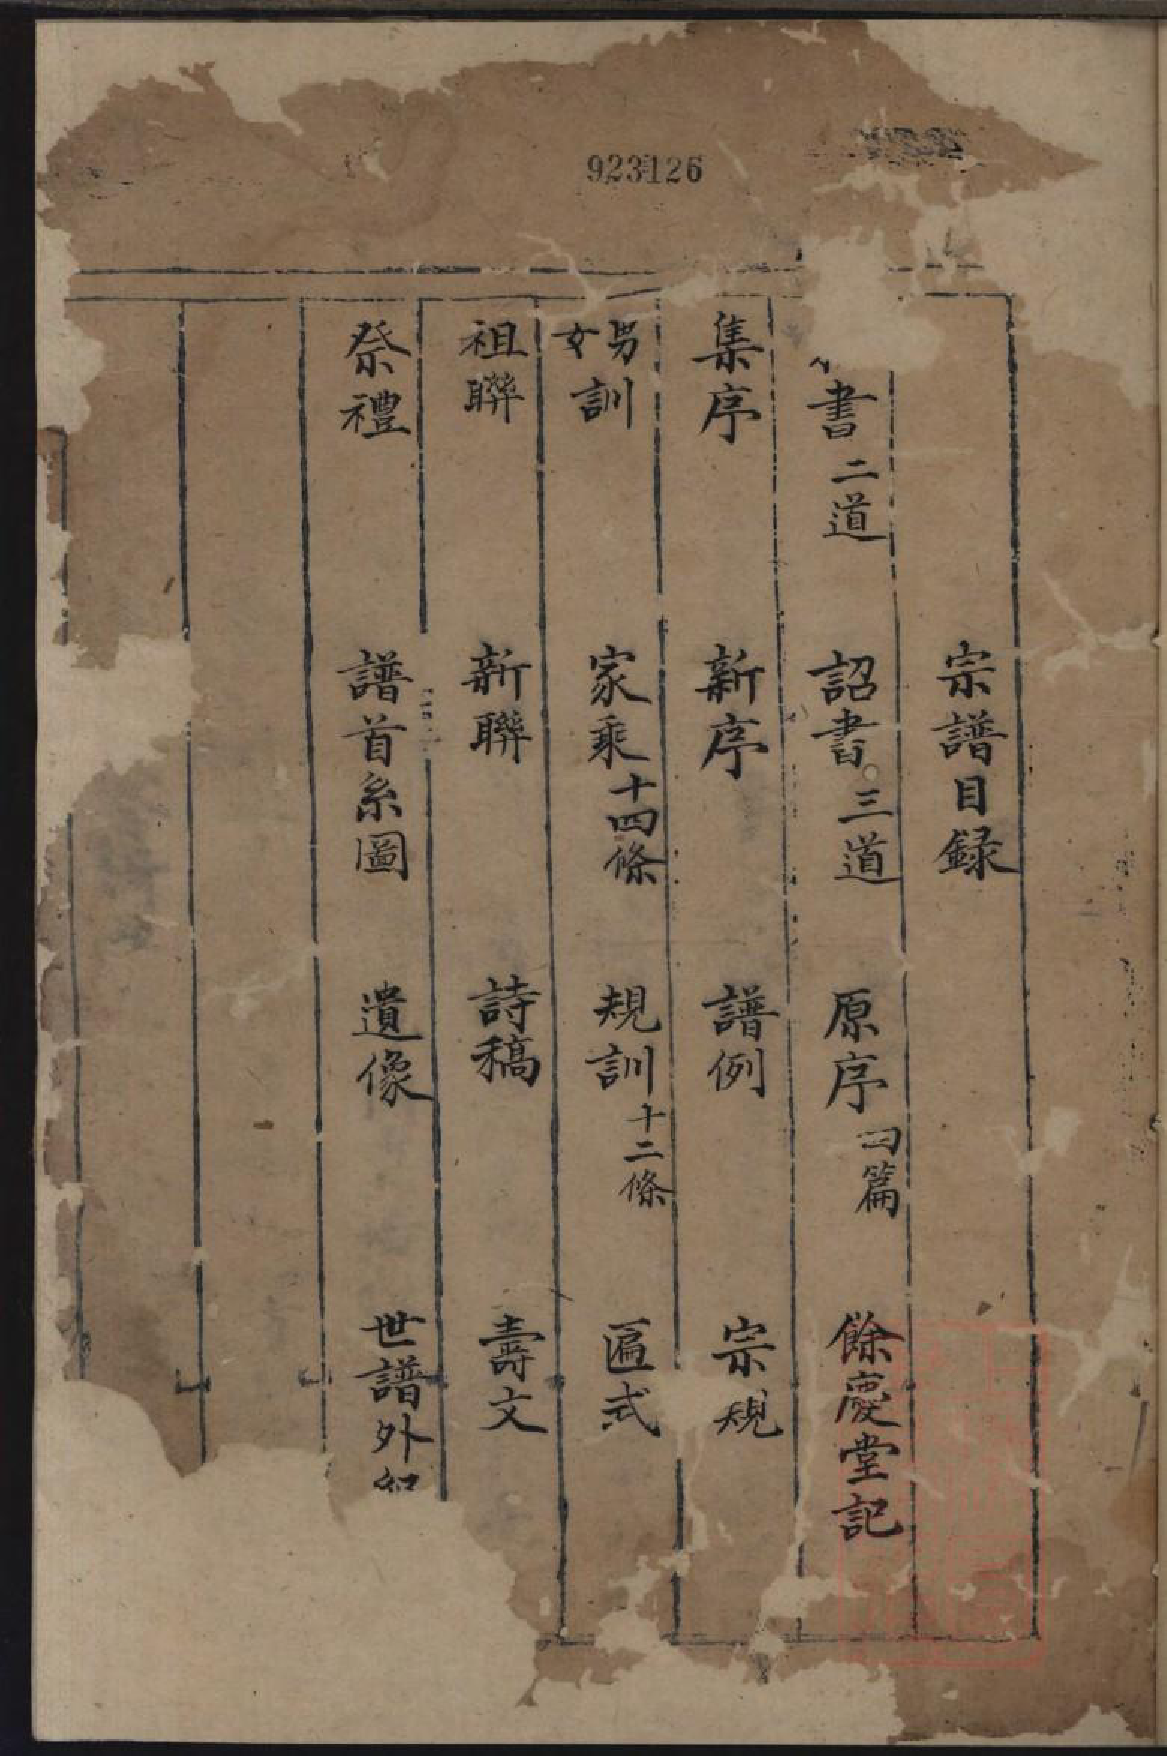 923126
宗譜目録
書二道 詔書三道 原序四篇 餘慶堂記
集序 新序 譜例 宗規
男女訓 家乘十四條 規訓十二條 匾式
祖聯 新聯 詩稿 壽文
祭禮 譜首系圖 遺像 世譜外紀